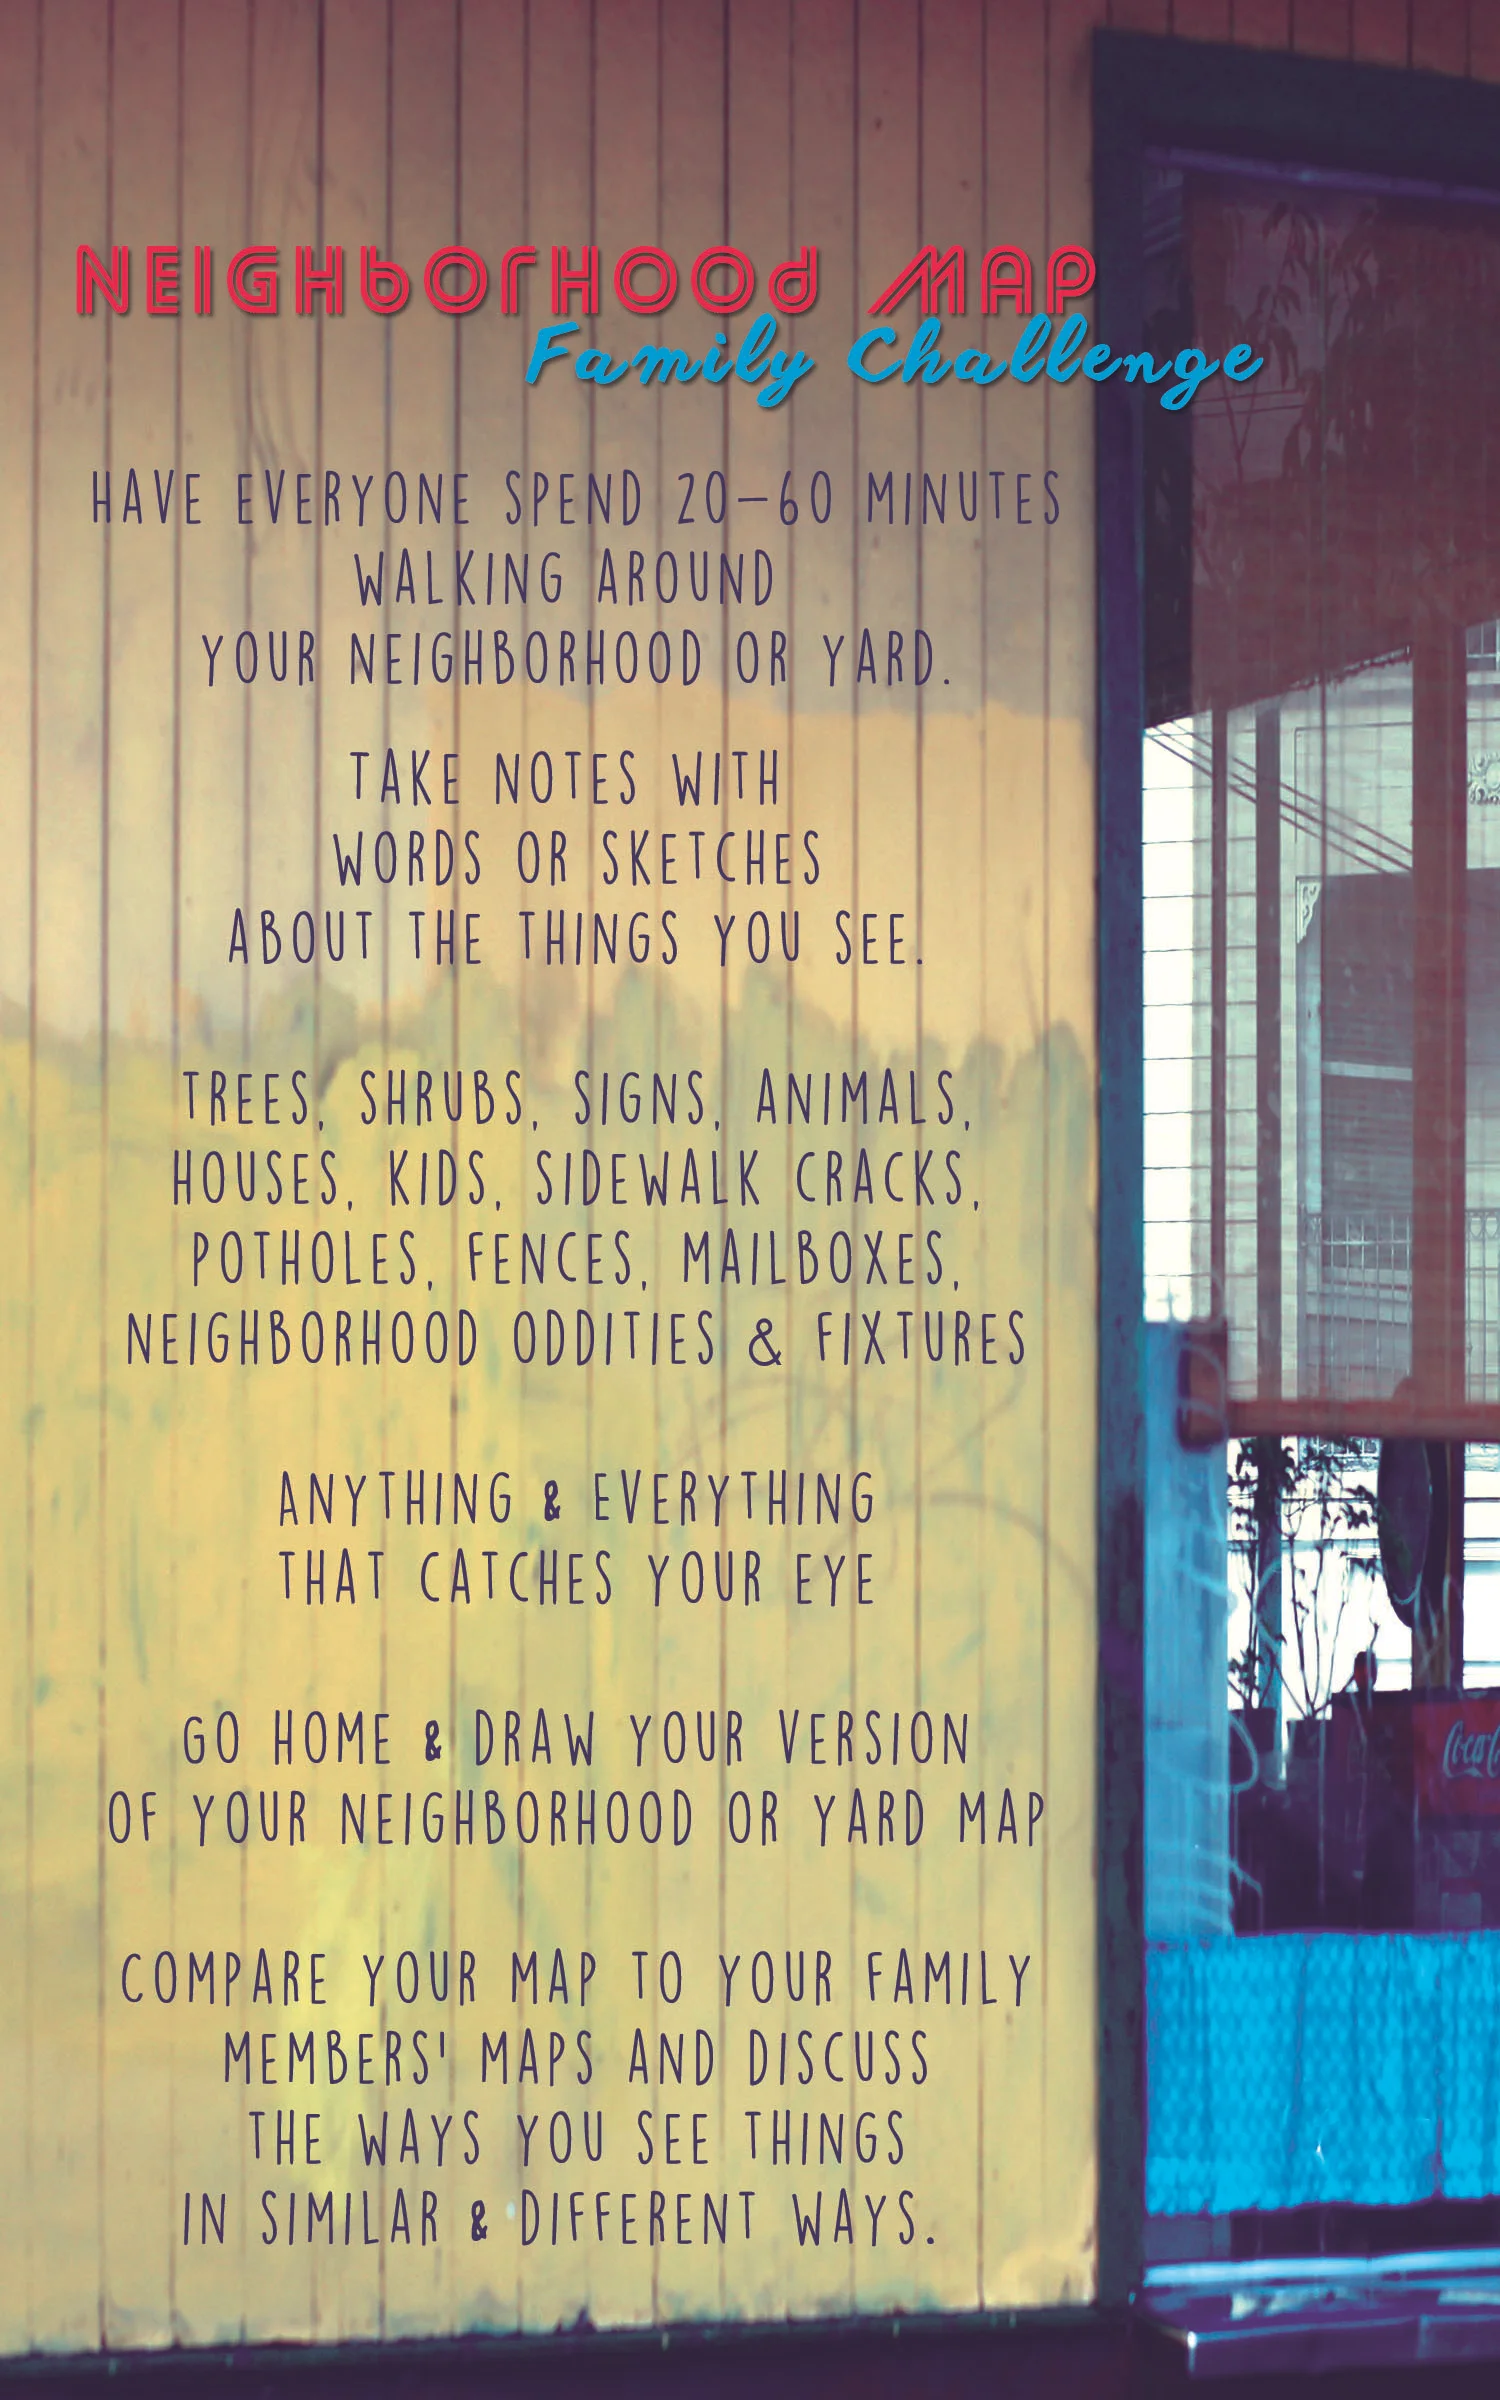 NEIGHBORHOOD MAP
Family Challenge
HAVE EVERYONE SPEND 20-60 MINUTES
WALKING AROUND
YOUR NEIGHBORHOOD OR YARD.
TAKE NOTES WITH
WORDS OR SKETCHES
ABOUT THE THINGS YOU SEE.
TREES, SHRUBS, SIGNS, ANIMALS,
HOUSES, KIDS, SIDEWALK CRACKS,
POTHOLES, FENCES, MAILBOXES,
NEIGHBORHOOD ODDITIES & FIXTURES
ANYTHING & EVERYTHING
THAT CATCHES YOUR EYE
GO HOME & DRAW YOUR VERSION
OF YOUR NEIGHBORHOOD OR YARD MAP
COMPARE YOUR MAP TO YOUR FAMILY
MEMBERS' MAPS AND DISCUSS
THE WAYS YOU SEE THINGS
IN SIMILAR & DIFFERENT WAYS.